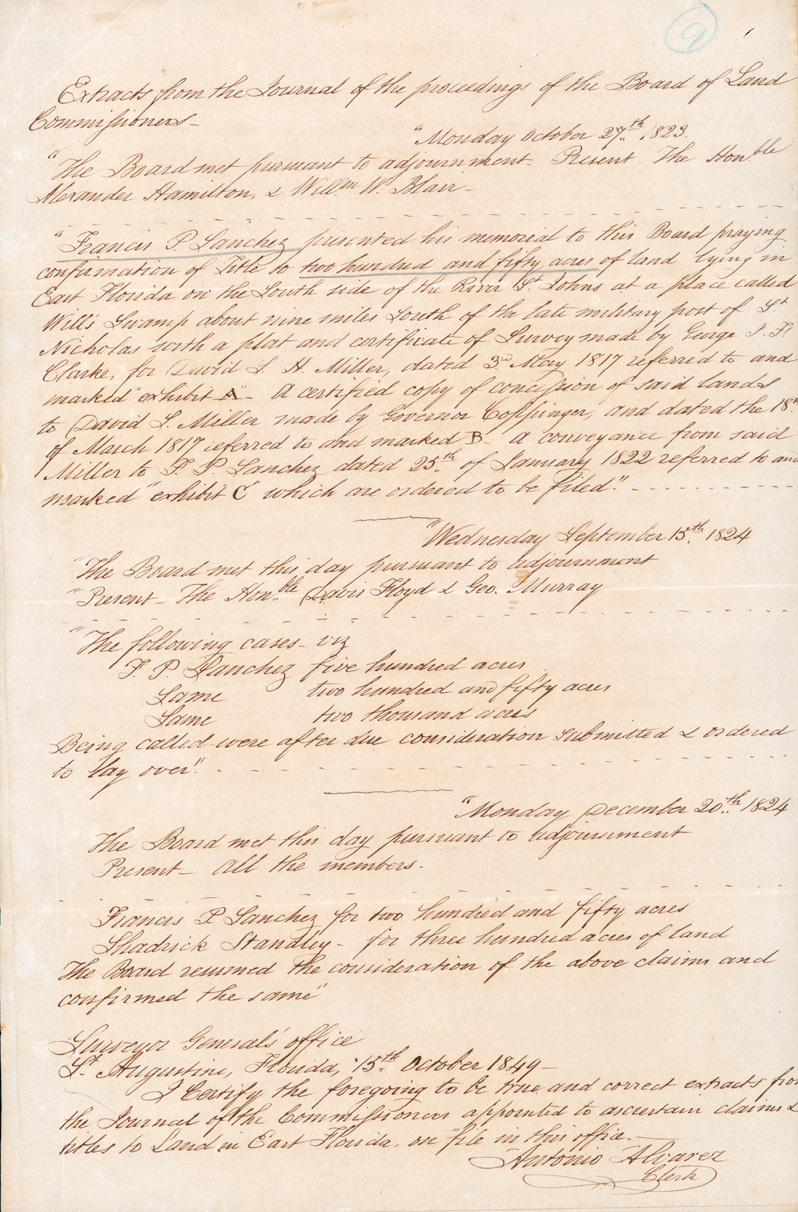 9
Extracts from the Journal of the proceedings of the Board of Land
Commissioners—
"Monday October 27th. 1823.
"The Board met pursuant to adjournment— Present. The Honble
Alexander Hamilton, & Willm W. Blair—
"Francis P. Sanchez presented his memorial to this Board praying
confirmation of Title to two hundred and fifty acres of land lying in
East Florida on the South side of the River St Johns at a place called
Will's Swamp about nine miles South of the late military post of St
Nicholas with a plat and certificate of Survey made by George I. F.
Clarke, for David S. H. Miller, dated 3d. May 1817 referred to and
marked "exhibit A"— A certified copy of concession of said lands
to David S. Miller made by Governor Coppinger, and dated the 18th
of March 1817 referred to and marked B— A conveyance from said
Miller to F. P. Sanchez dated 25th. of January 1822 referred to and
marked "exhibit C" which are ordered to be filed".
"Wednesday September 15th. 1824
"The Board met this day pursuant to adjournment
"Present— The Honble. Davis Floyd & Geo. Murray
"The following cases— viz
F. P. Sanchez five hundred acres
Same two hundred and fifty acres
Same two thousand acres
Being called were after due consideration submitted & ordered
to lay over".
"Monday December 20th. 1824
The Board met this day pursuant to adjournment
Present— All the members.
Francis P. Sanchez for two hundred and fifty acres
Shadrick Standley— for three hundred acres of land
The Board resumed the consideration of the above claims and
confirmed the same"
Surveyor Generals' office
St. Augustine, Florida, 15th. October 1849—
I Certify the foregoing to be true and correct extracts from
the Journal of the Commissioners appointed to ascertain claims &
titles to Land in East Florida, on file in this office.—
Antonio Alvarez
Clerk